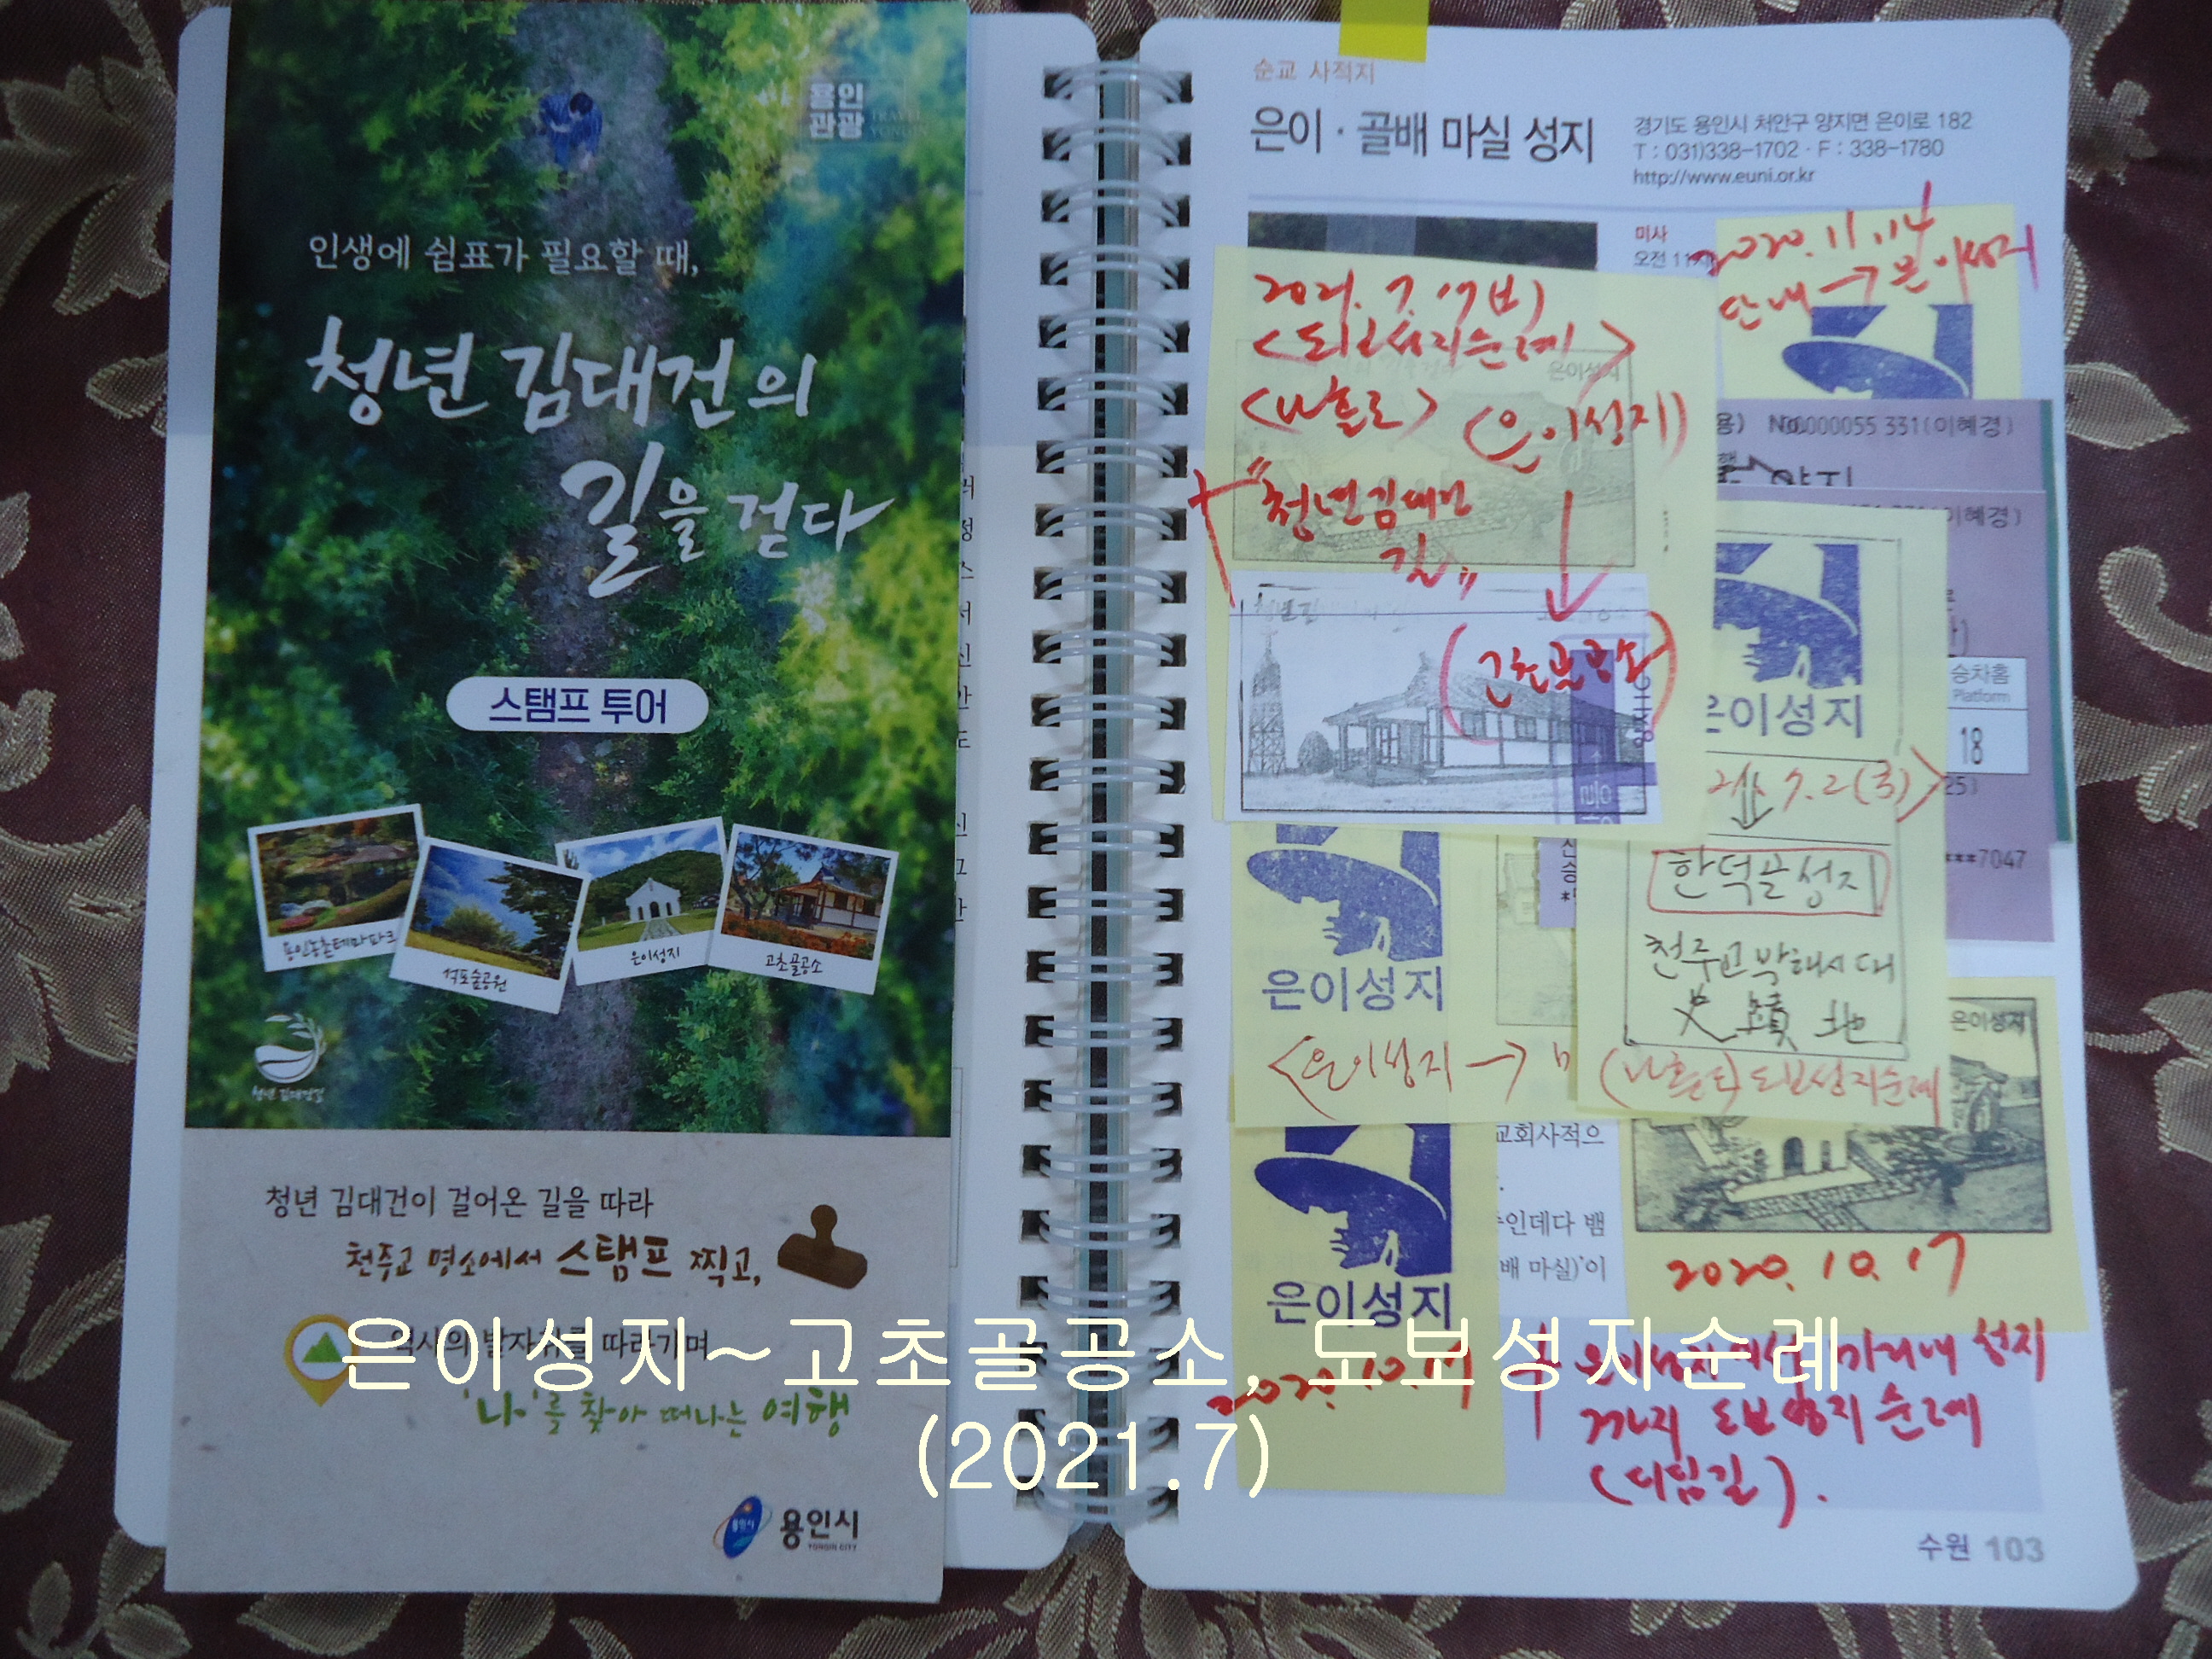 용인
관광
TRAVEL
YONGIN
인생에 쉼표가 필요할 때,
청년 김대건의
길을 걷다
스탬프 투어
용인농촌테마파크
석포숲공원
은이성지
고초골공소
청년 김대건길
청년 김대건이 걸어온 길을 따라
천주교 명소에서 스탬프 찍고,
역사의 발자취를 따라가며
'나'를 찾아 떠나는 여행
용인시
YONGIN CITY
순교 사적지
은이 · 골배 마실 성지
경기도 용인시 처안구 양지면 은이로 182
T : 031)338-1702 · F : 338-1780
http://www.euni.or.kr
미사
오전 11시
2020.11.14
단내→은이성지
2021. 7. 17(토)
<도보성지순례>
<나홀로> (은이성지)
은이성지
+ "청년 김대건
길"
(고초골공소)
No.00000055 331(이혜경)
양지
이혜경)
승차홈
Platform
18
***7047
은이성지
7.2(금)>
한덕골성지
천주교박해시대
史蹟地
(나홀로) 도보성지순례
은이성지
<은이성지→
은이성지
교회사적으
인데다 뱀
배 마실)'이
은이성지
2020.10.17
은이성지
2020.10.17
+ 은이성지에서 미리내 성지
까지 도보성지순례
(디딤길).
수원 103
은이성지~고초골공소, 도보성지순례
(2021.7)